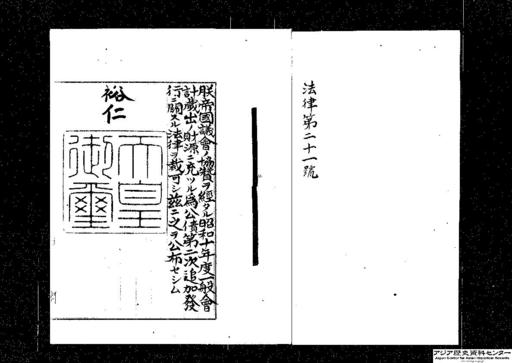 法律第二十一號
朕帝國議會ノ協賛ヲ經タル昭和十年度一般會
計歲出ノ財源ニ充ツル爲公債第二次追加發
行ニ關スル法律ヲ裁可シ茲ニ之ヲ公布セシム
裕仁
天皇
御璽
アジア歴史資料センター
Japan Center for Asian Historical Records